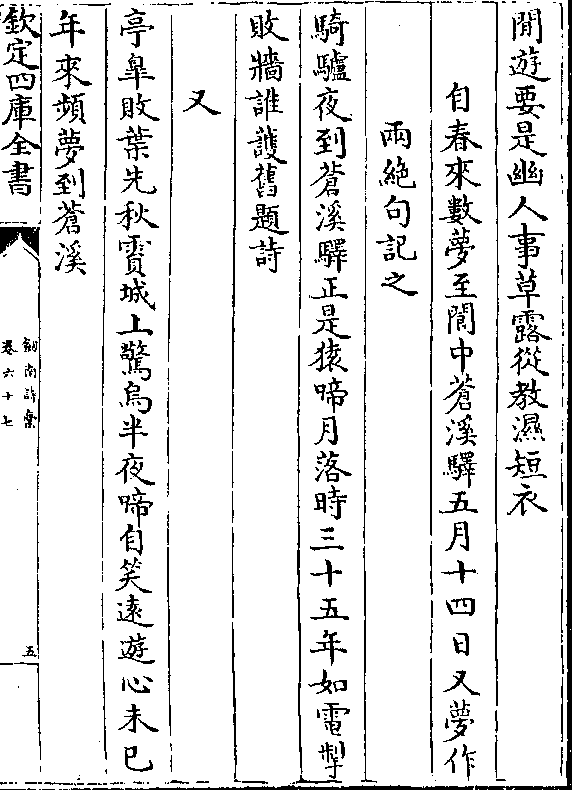 閒遊要是幽人事草露從教濕短衣
自春來數夢至閬中蒼溪驛五月十四日又夢作
兩絶句記之
騎驢夜到蒼溪驛正是猿啼月落時三十五年如電掣
敗牆誰護舊題詩
又
亭臯敗葉先秋霣城上驚烏半夜啼自笑遠遊心未已
年來頻夢到蒼溪
欽定四庫全書
劒南詩稾
卷六十七
五